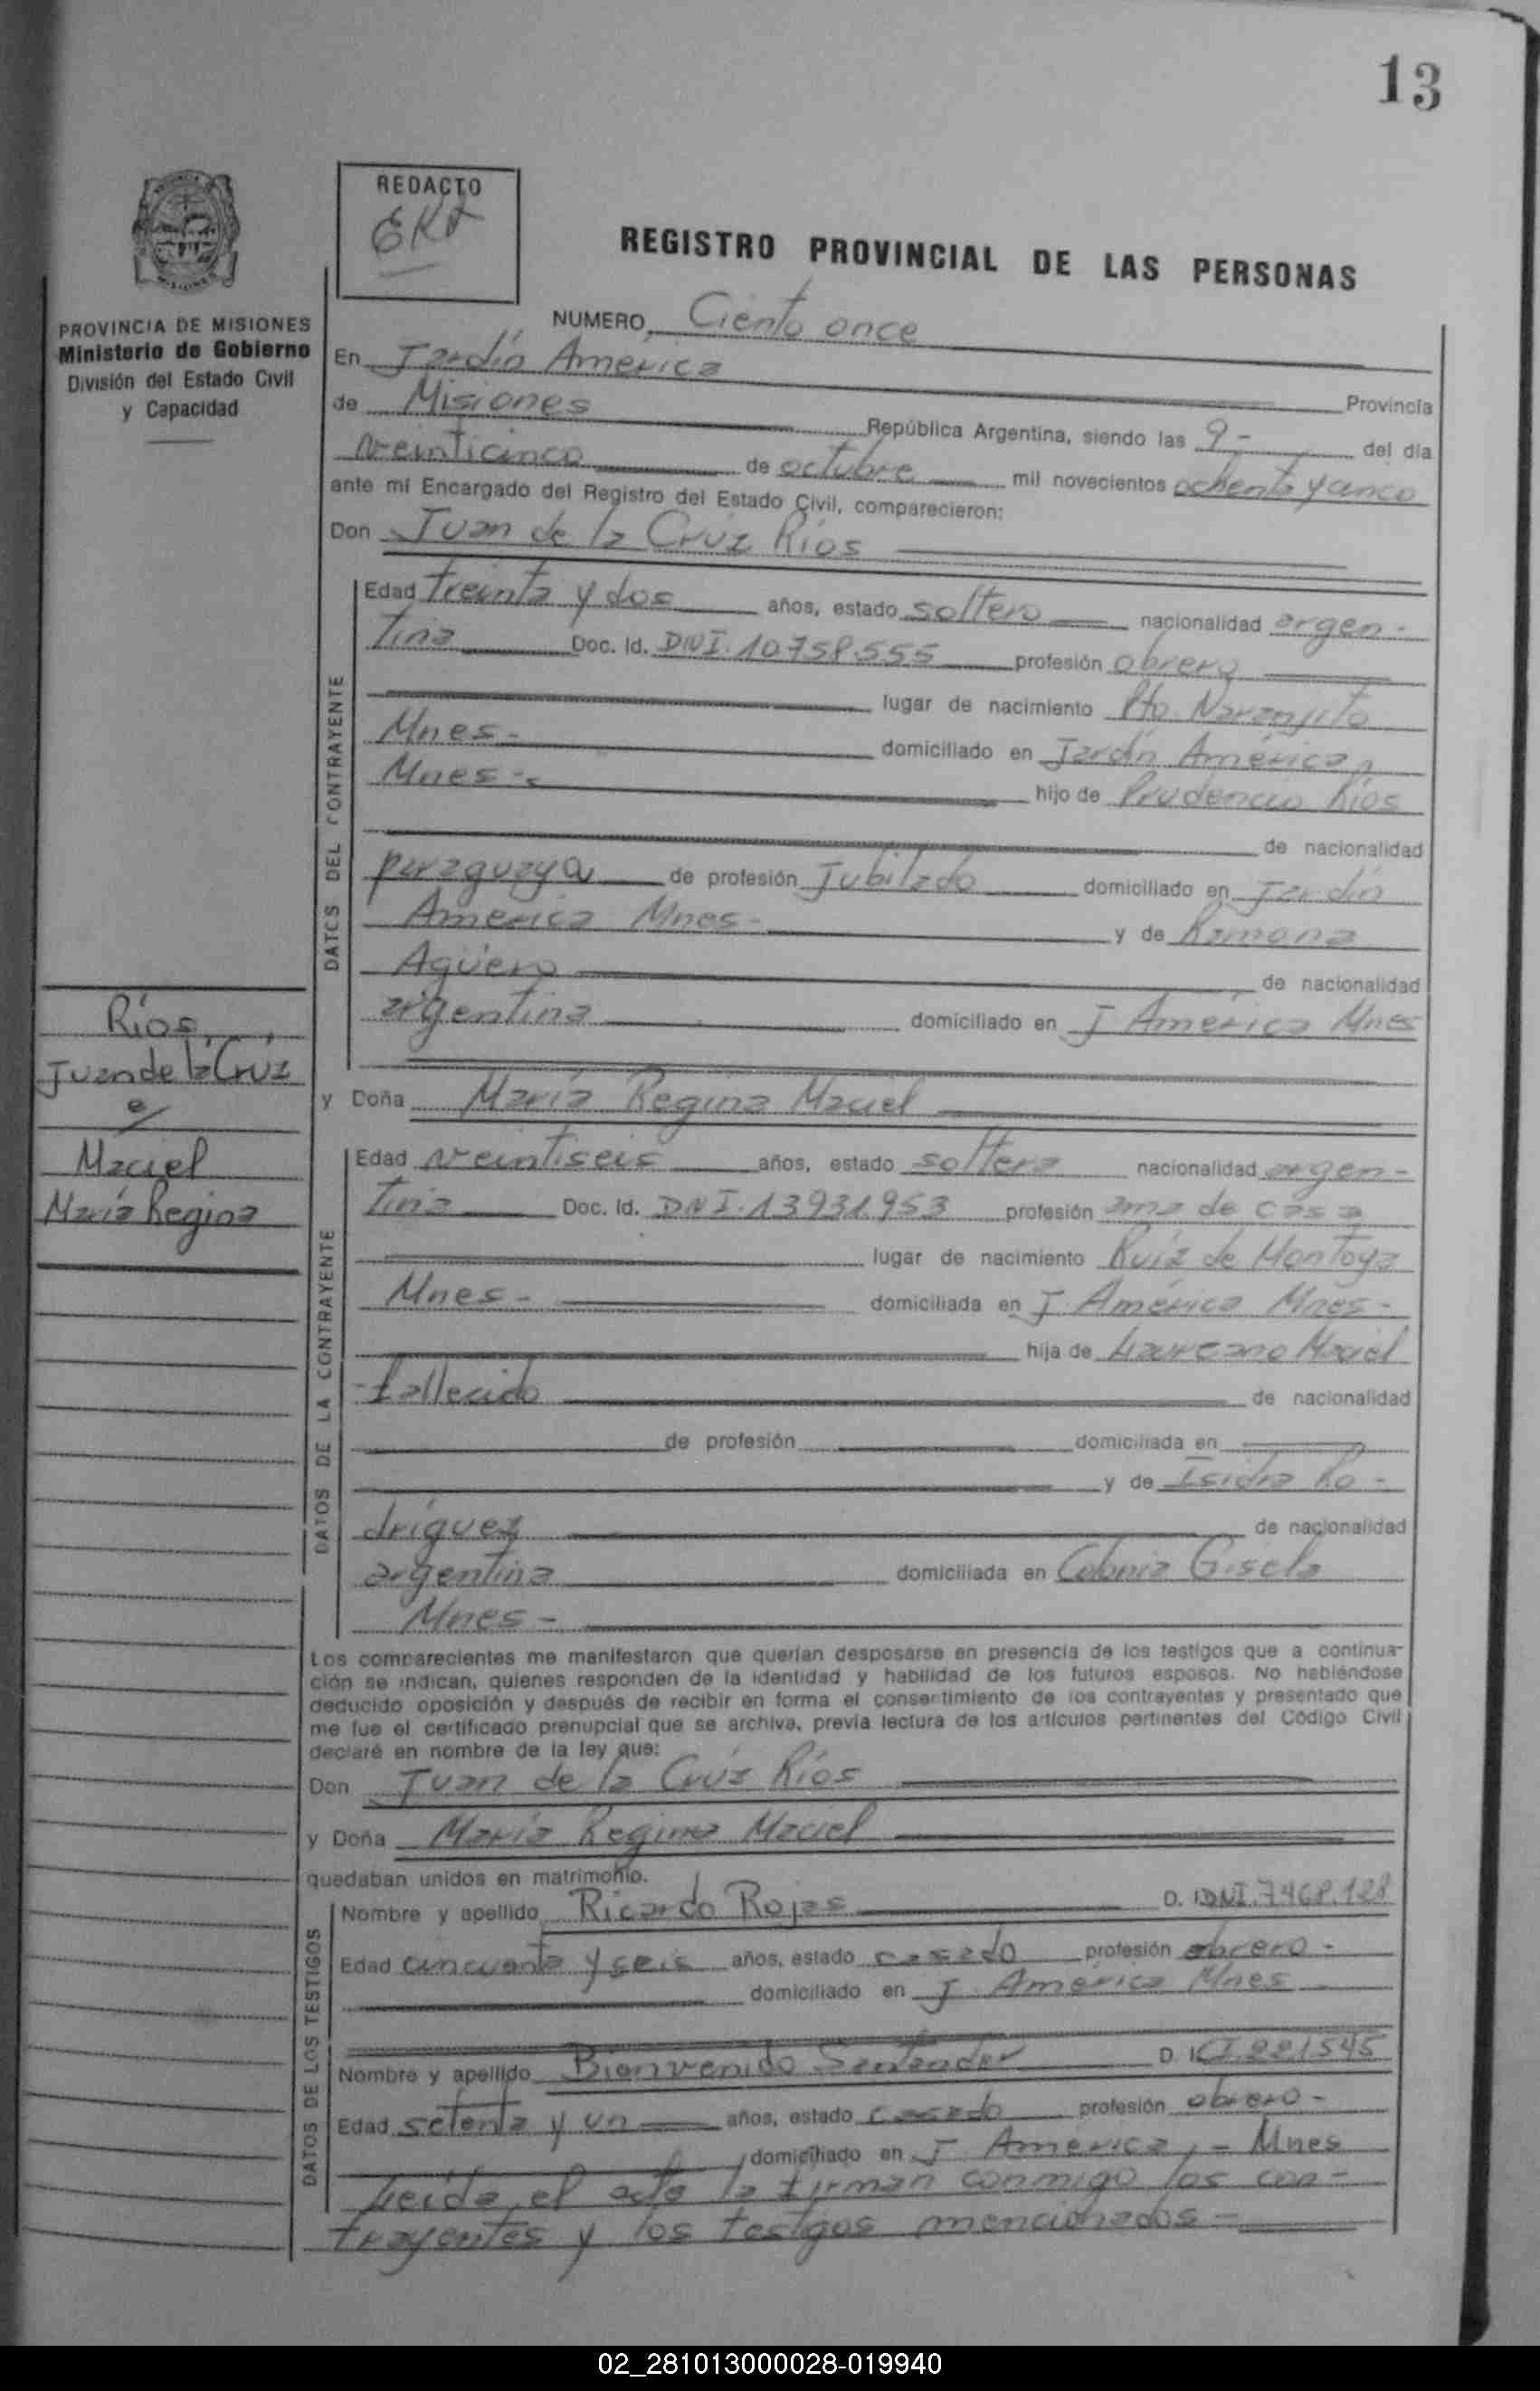 13
REDACTO
PROVINCIA DE MISIONES
Ministerio de Gobierno
División del Estado Civil
y Capacidad
REGISTRO PROVINCIAL DE LAS PERSONAS
NUMERO Ciento once
En Jardín América
Provincia
de Misiones República Argentina, siendo las 9- del día
veinticinco de octubre mil novecientos ochenta y cinco
ante mí Encargado del Registro del Estado Civil, comparecieron:
Don Juan de la Cruz Ríos
DATOS DEL CONTRAYENTE
Edad treinta y dos años, estado soltero nacionalidad argen-
tina Doc. Id. DNI.10.758.555 profesión obrero
lugar de nacimiento Pto. Naranjito
Mnes- domiciliado en Jardín América
Mnes- hijo de Prudencio Ríos
de nacionalidad
paraguaya de profesión Jubilado domiciliado en Jardín
América Mnes- y de Ramona
Agüero de nacionalidad
argentina domiciliado en J América Mnes
Ríos,
Juan de la Cruz
c/
Maciel
María Regina
y Doña María Regina Maciel
DATOS DE LA CONTRAYENTE
Edad veintiseis años, estado soltera nacionalidad argen-
tina Doc. Id. DNI.13931.953 profesión ama de casa
lugar de nacimiento Ruíz de Montoya
Mnes- domiciliada en J. América Mnes-
hija de Laureano Maciel
-fallecido de nacionalidad
de profesión domiciliada en
y de Isidra Ro-
dríguez de nacionalidad
argentina domiciliada en Colonia Gisela
Mnes-
Los comparecientes me manifestaron que querían desposarse en presencia de los testigos que a continua-
ción se indican, quienes responden de la identidad y habilidad de los futuros esposos. No habiéndose
deducido oposición y después de recibir en forma el consentimiento de los contrayentes y presentado que
me fue el certificado prenupcial que se archiva, previa lectura de los artículos pertinentes del Código Civil
declaré en nombre de la ley que:
Don Juan de la Cruz Ríos
y Doña María Regina Maciel
quedaban unidos en matrimonio.
DATOS DE LOS TESTIGOS
Nombre y apellido Ricardo Rojas D. I DNI.7.468.128
Edad cincuenta y seis años, estado casado profesión obrero-
domiciliado en J. América Mnes
Nombre y apellido Bienvenido Santander D. I CI.221545
Edad setenta y un años, estado casado profesión obrero-
domiciliado en J América,- Mnes
Leída el acta la firman conmigo los con-
trayentes y los testigos mencionados-
02_281013000028-019940